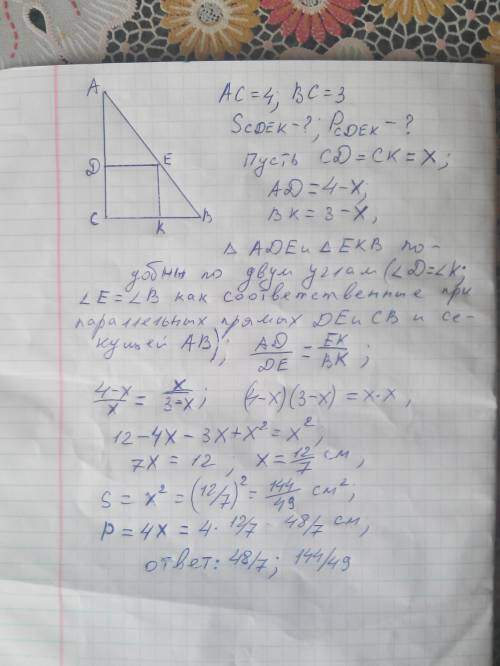 A
D
E
C
K
B
AC=4; BC=3
S CDEK-?; P CDEK-?
Пусть CD=CK=X;
AD=4-X;
BK=3-X,
△ ADE и △ EKB по-
добны по двум углам (∠D=∠K;
∠E=∠B как соответственные при
параллельных прямых DE и CB и се-
кущей AB); AD/DE = EK/BK;
4-x/x = x/3-x; (4-x)(3-x) = x·x,
12-4x-3x+x²=x²,
7x = 12, x = 12/7 см,
S = x² = (12/7)² = 144/49 см²,
P = 4x = 4· 12/7 48/7 см,
ответ: 48/7; 144/49